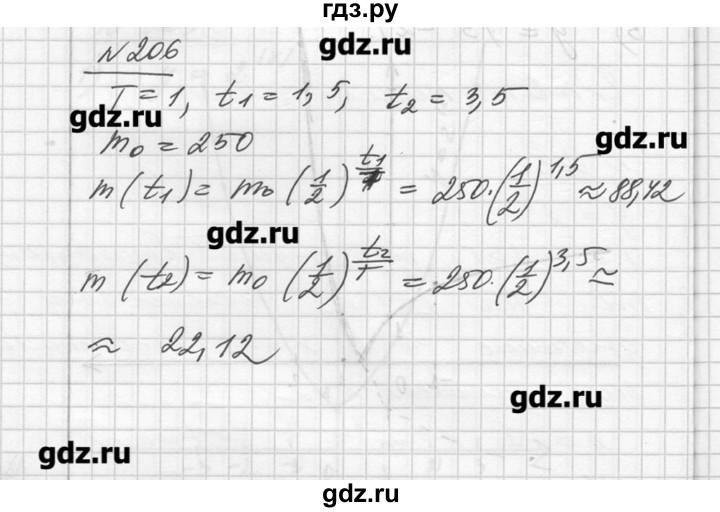 гдз.ру
N 206
gdz.ru
T = 1, t₁ = 1,5, t₂ = 3,5
gdz.ru
gdz.ru
m₀ = 250
m(t₁) = m₀ (1/2)^(t₁/T) = 250·(1/2)^1,5 ≈ 88,42
gdz.ru
m(t₂) = m₀ (1/2)^(t₂/T) = 250·(1/2)^3,5 ≈
≈ 22,12
gdz.ru
gdz.ru
gdz.ru